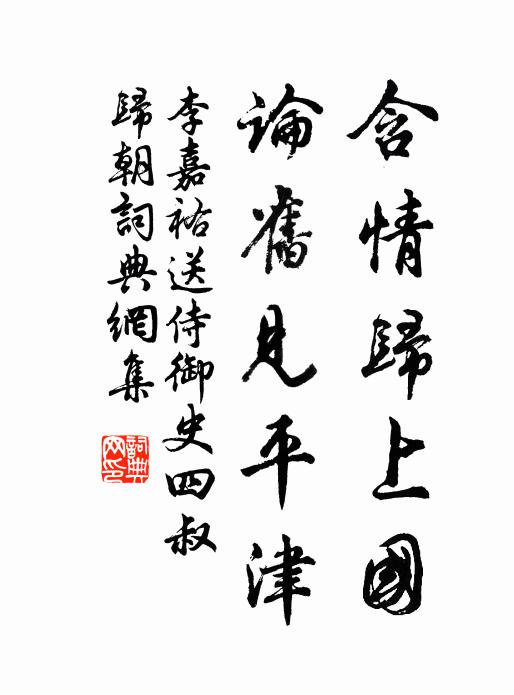 含情歸上國
論舊見平津
李嘉祐送侍御史四叔
歸朝詞典網集
詞典網印